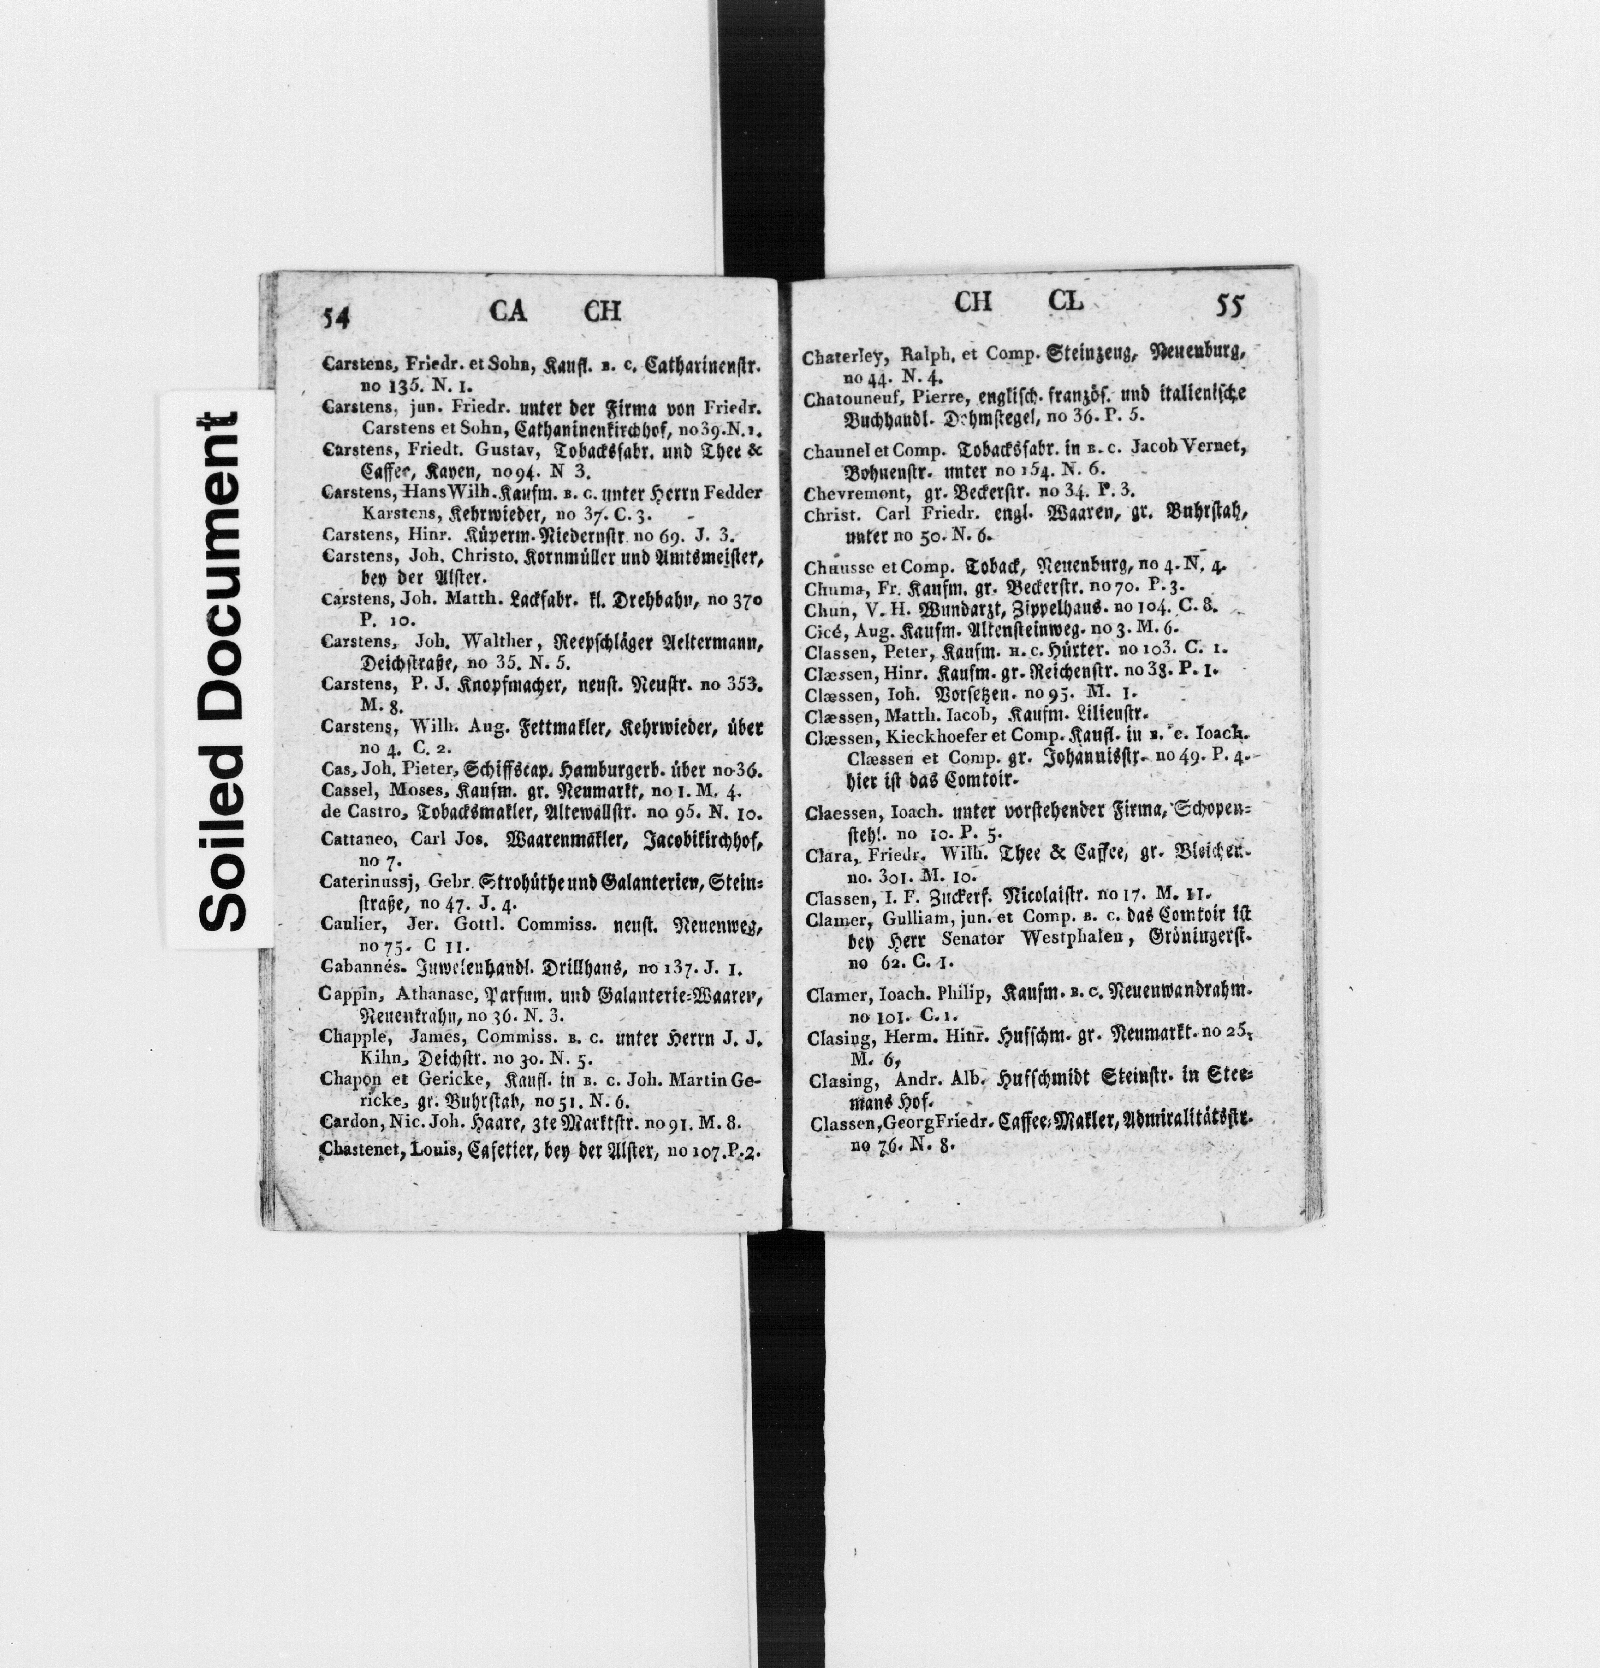 Soiled Document
54 CA CH
Carstens, Friedr. et Sohn, Kaufl. B. C. Catharinenstr.
no 135. N. 1.
Carstens, jun. Friedr. unter der Firma von Friedr.
Carstens et Sohn, Cathaninenkirchhof, no 39. N. 1.
Carstens, Friedt. Gustav, Tobacksfabr. und Thee &
Caffee, Kayen, no 94. N 3.
Carstens, Hans Wilh. Kaufm. B. C. unter Herrn Fedder
Karstens, Kehrwieder, no 37. C. 3.
Carstens, Hinr. Küperm. Niedernstr no 69. J. 3.
Carstens, Joh. Christo. Kornmüller und Amtsmeister,
bey der Alster.
Carstens, Joh. Matth. Lackfabr. kl. Drehbahn, no 370
P. 10.
Carstens, Joh. Walther, Reepschläger Aeltermann,
Deichstraße, no 35. N. 5.
Carstens, P. J. Knopfmacher, neust. Neustr. no 353.
M. 8.
Carstens, Wilh. Aug. Fettmakler, Kehrwieder, über
no 4. C. 2.
Cas, Joh. Pieter, Schiffscap. Hamburgerb. über no 36.
Cassel, Moses, Kaufm. gr. Neumarkt, no 1. M. 4.
de Castro, Tobacksmakler, Altewallstr. no 95. N. 10.
Cattaneo, Carl Jos. Waarenmäkler, Jacobikirchhof,
no 7.
Caterinussj, Gebr. Strohüthe und Galanterien, Stein-
straße, no 47. J. 4.
Caulier, Jer. Gottl. Commiss. neust. Neuenweg,
no 75. C 11.
Cabannés. Juwelenhandl. Drillhaus, no 137. J. 1.
Cappin, Athanase, Parfum. und Galanterie-Waaren,
Neuenkrahn, no 36. N. 3.
Chapple, James, Commiss. B. C. unter Herrn J. J.
Kihn, Deichstr. no 30. N. 5.
Chapon et Gericke, Kaufl. in B. C. Joh. Martin Ge-
ricke, gr. Buhrstah, no 51. N. 6.
Cardon, Nic. Joh. Haare, 3te Marktstr. no 91. M. 8.
Chastenet, Louis, Cafetier, bey der Alster, no 107. P. 2.
CH CL 55
Chaterley, Ralph. et Comp. Steinzeug, Neuenburg,
no 44. N. 4.
Chatouneuf, Pierre, englisch. französ. und italienische
Buchhandl. Dohmstegel, no 36. P. 5.
Chaunel et Comp. Tobacksfabr. in B. C. Jacob Vernet,
Bohnenstr. unter no 154. N. 6.
Chevremont, gr. Beckerstr. no 34. P. 3.
Christ. Carl Friedr. engl. Waaren, gr. Buhrstah,
unter no 50. N. 6.
Chuusse et Comp. Toback, Neuenburg, no 4. N. 4.
Chuma, Fr. Kaufm. gr. Beckerstr. no 70. P. 3.
Chun, V. H. Wundarzt, Zippelhaus. no 104. C. 8.
Cicé, Aug. Kaufm. Altensteinweg. no 3. M. 6.
Classen, Peter, Kaufm. H. C. Hürter. no 103. C. 1.
Clæssen, Hinr. Kaufm. gr. Reichenstr. no 38. P. 1.
Clæssen, Ioh. Vorsetzen. no 95. M. 1.
Clæssen, Matth. Iacob, Kaufm. Lilienstr.
Clæssen, Kieckhoefer et Comp. Kaufl. in B. C. Ioach.
Clæssen et Comp. gr. Johannisstr. no 49. P. 4.
hier ist das Comtoir.
Claessen, Ioach. unter vorstehender Firma, Schopen-
stehl. no 10. P. 5.
Clara, Friedr. Wilh. Thee & Caffee, gr. Bleichen.
no. 301. M. 10.
Classen, I. F. Zuckerf. Nicolaistr. no 17. M. 11.
Clamer, Gulliam, jun. et Comp. B. C. das Comtoir ist
bey Herr Senator Westphalen, Gröningerst.
no 62. C. 1.
Clamer, Ioach. Philip, Kaufm. B. C. Neuenwandrahm.
no 101. C. 1.
Clasing, Herm. Hinr. Hufschm. gr. Neumarkt. no 25,
M. 6,
Clasing, Andr. Alb. Hufschmidt Steinstr. in Stee-
mans Hof.
Classen, Georg Friedr. Caffee-Makler, Admiralitätsstr.
no 76. N. 8.